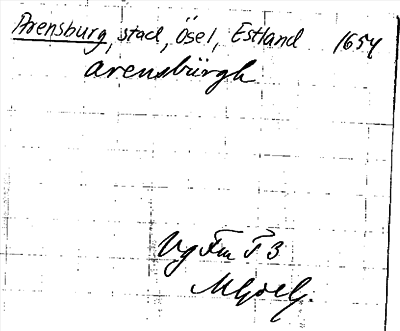 Arensburg, stad, Ösel, Estland 1654
arensbürgh
Vg Fm T 3